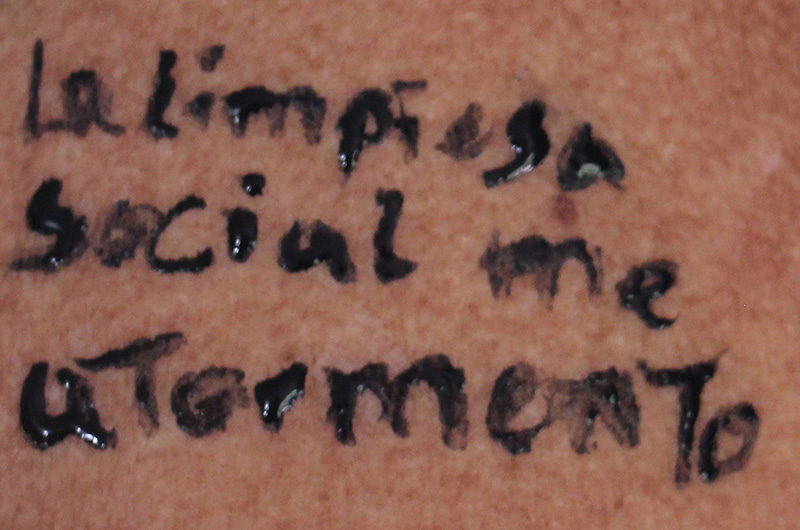 La limpiesa
social me
aTormenTo